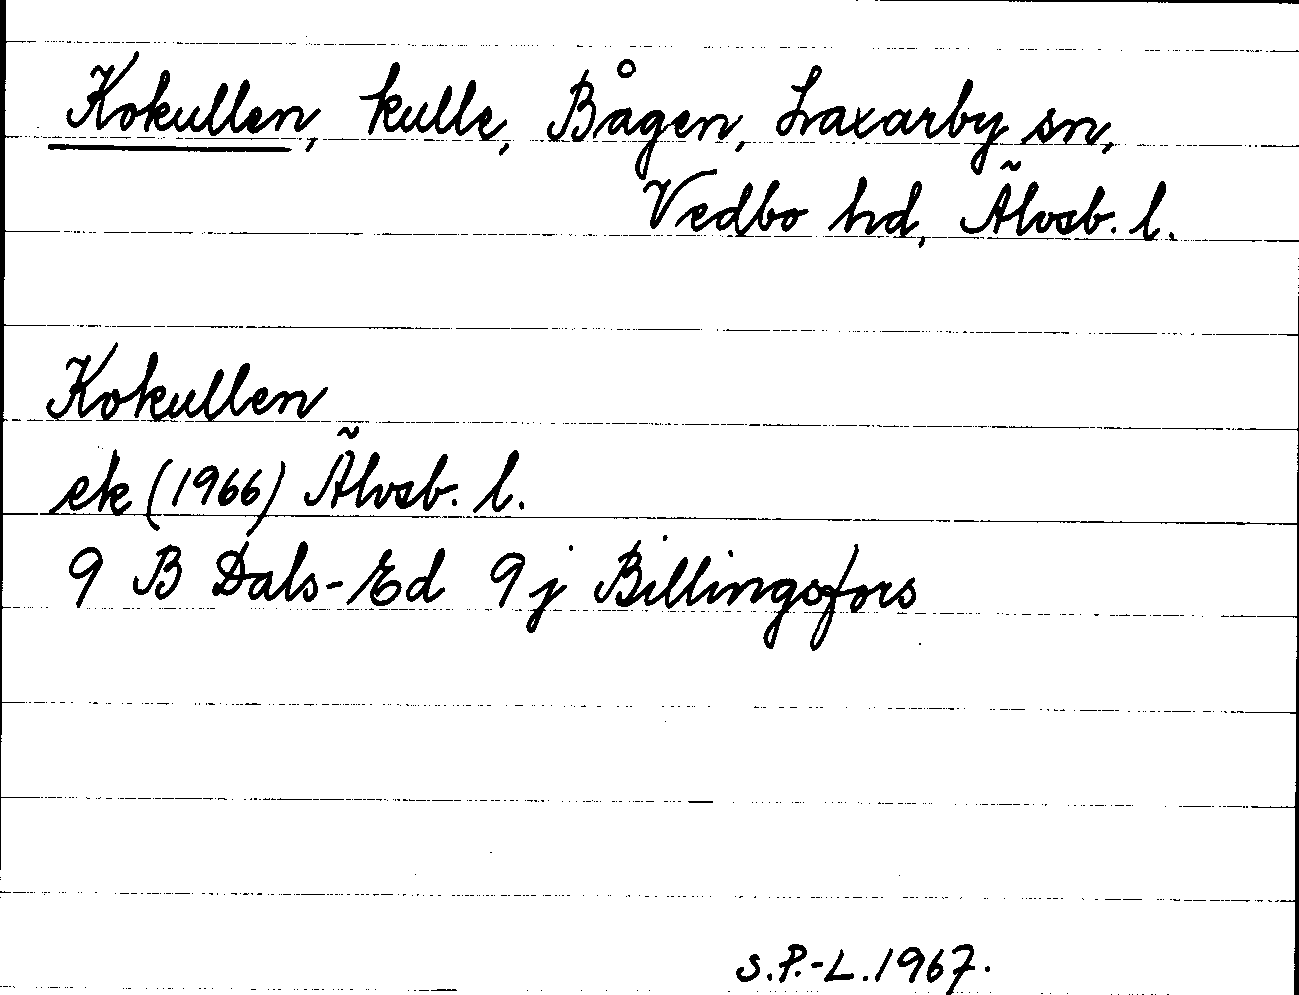 Kokullen, kulle, Bågen, Laxarby sn,
Vedbo hd, Älvsb. l.
Kokullen
ek (1966) Älvsb. l.
9 B Dals-Ed 9j Billingsfors
S.P.-L.1967.